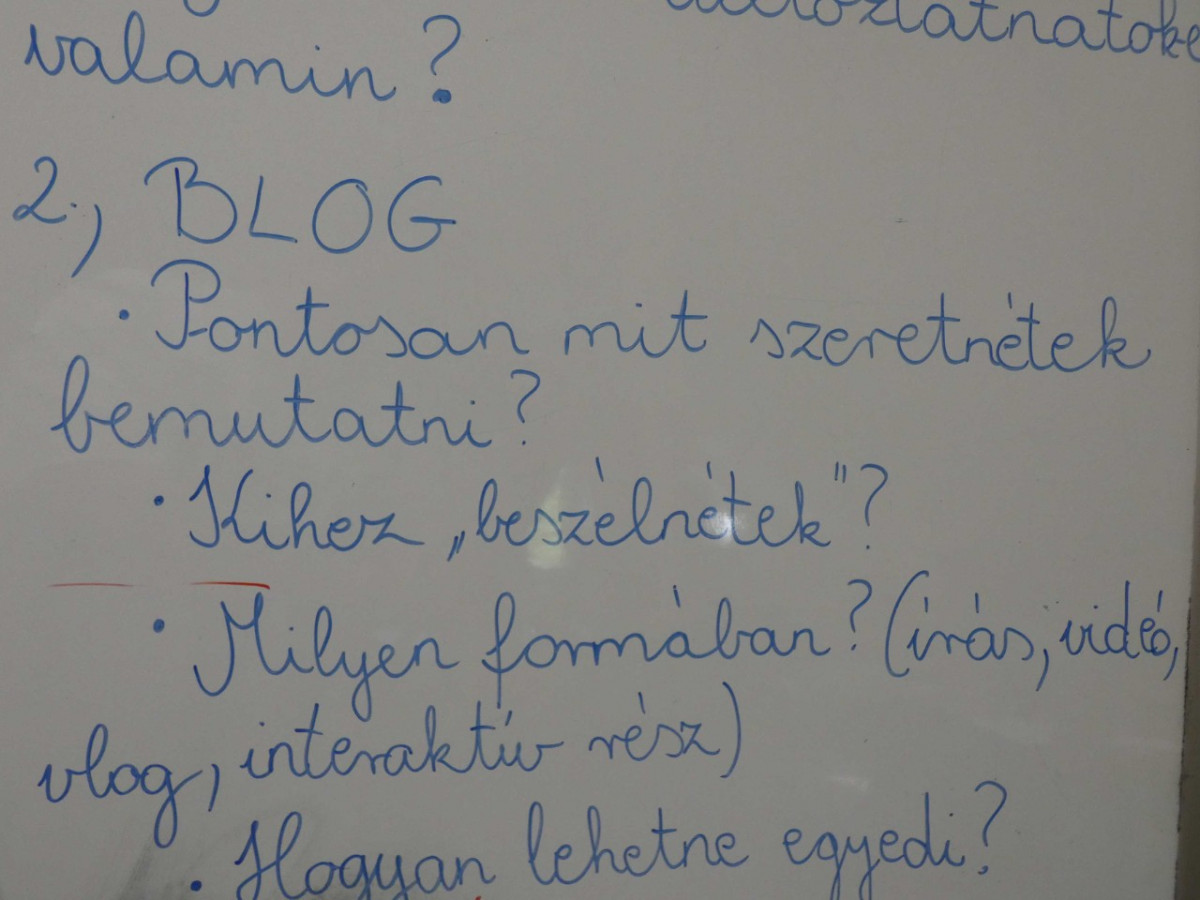 valamin?
2., BLOG
• Pontosan mit szeretnétek
bemutatni?
• Kihez „beszélnétek"?
• Milyen formában? (írás, vidéó,
vlog, interaktív rész)
• Hogyan lehetne egyedi?